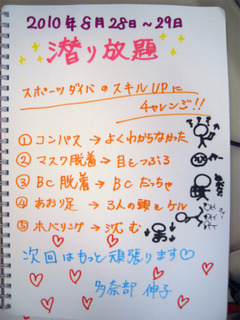 2010年8月28日～29日
潜り放題
スポーツダイバのスキルUPに
チャレンジ!!
① コンパス → よくわからなかった
② マスク脱着 → 目もつぶる
③ BC脱着 → BCだっちゃ
④ あおり足 → 3人の頭をケル
⑤ ホバリング → 沈む
次回はもっと頑張ります♡
多奈部 伸子